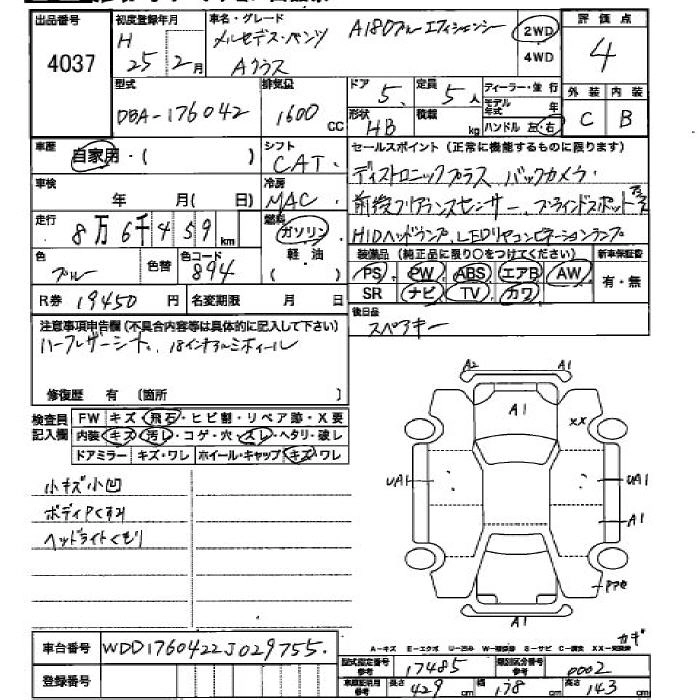 出品番号 初度登録年月 車名・グレード 評価点
4037 H 25年 2月 メルセデス・ベンツ A180ブルーエフィシェンシー 2WD 4
Aクラス 4WD
型式 排気量 ドア 定員 ディーラー・並行 外装 内装
DBA-176042 1600 CC 5 5人 モデル年式 年 C B
形状 HB 積載 kg ハンドル 左・右
車歴 自家用・( ) シフト CAT セールスポイント (正常に機能するものに限ります)
車検 年 月( 日) 冷房 MAC ディストロニックプラス バックカメラ・
走行 8万6千459km 燃料 ガソリン 前後クリアランスセンサー、ブラインドスポット
軽油 HIDヘッドランプ、LEDリヤコンビネーションランプ
色 ブルー 色替 色コード 894 ( ) 装備品 (純正品に限り○をつけてください) 新車保証書
PS PW ABS エアB AW 有・無
R券 19450円 名変期限 月 日 SR ナビ TV カワ
注意事項申告欄 (不具合内容等は具体的に記入して下さい) 後日品
ハーフレザーシート、18インチアルミホイール スペアキー
修復歴 有 [箇所 ]
検査員記入欄 FW キズ・飛石・ヒビ割・リペア跡・X要
内装・キズ・汚レ・コゲ・穴・スレ・ヘタリ・破レ
ドアミラー キズ・ワレ ホイール・キャップ キズ・ワレ
小キズ小凹
ボディPくすみ
ヘッドライトくもり
A2 A1
A1 XX
UA1 UA1
A1
A1
カギ
A-キズ E-エクボ U-凹み W-補修跡 S-サビ C-腐食 XX-交換済
車台番号 WDD1760422J029755
型式指定番号 参考 17485 類別区分番号 参考 0002
登録番号 車検証明用 参考 長さ 429cm 幅 178cm 高さ 143cm